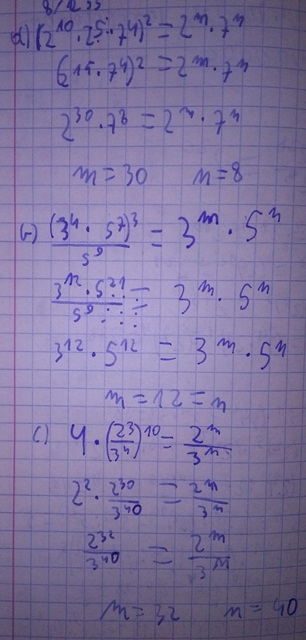 a) (2¹⁰ · 2⁵ · 7⁴)² = 2ᵐ · 7ⁿ
(2¹⁵ · 7⁴)² = 2ᵐ · 7ⁿ
2³⁰ · 7⁸ = 2ᵐ · 7ⁿ
m = 30 n = 8
b) (3⁴ · 5⁷)³ / 5⁹ = 3ᵐ · 5ⁿ
3¹² · 5²¹ / 5⁹ = 3ᵐ · 5ⁿ
3¹² · 5¹² = 3ᵐ · 5ⁿ
m = 12 = n
c) 4 · (2³/3⁴)¹⁰ = 2ᵐ/3ⁿ
2² · 2³⁰/3⁴⁰ = 2ᵐ/3ⁿ
2³²/3⁴⁰ = 2ᵐ/3ⁿ
m = 32 n = 40